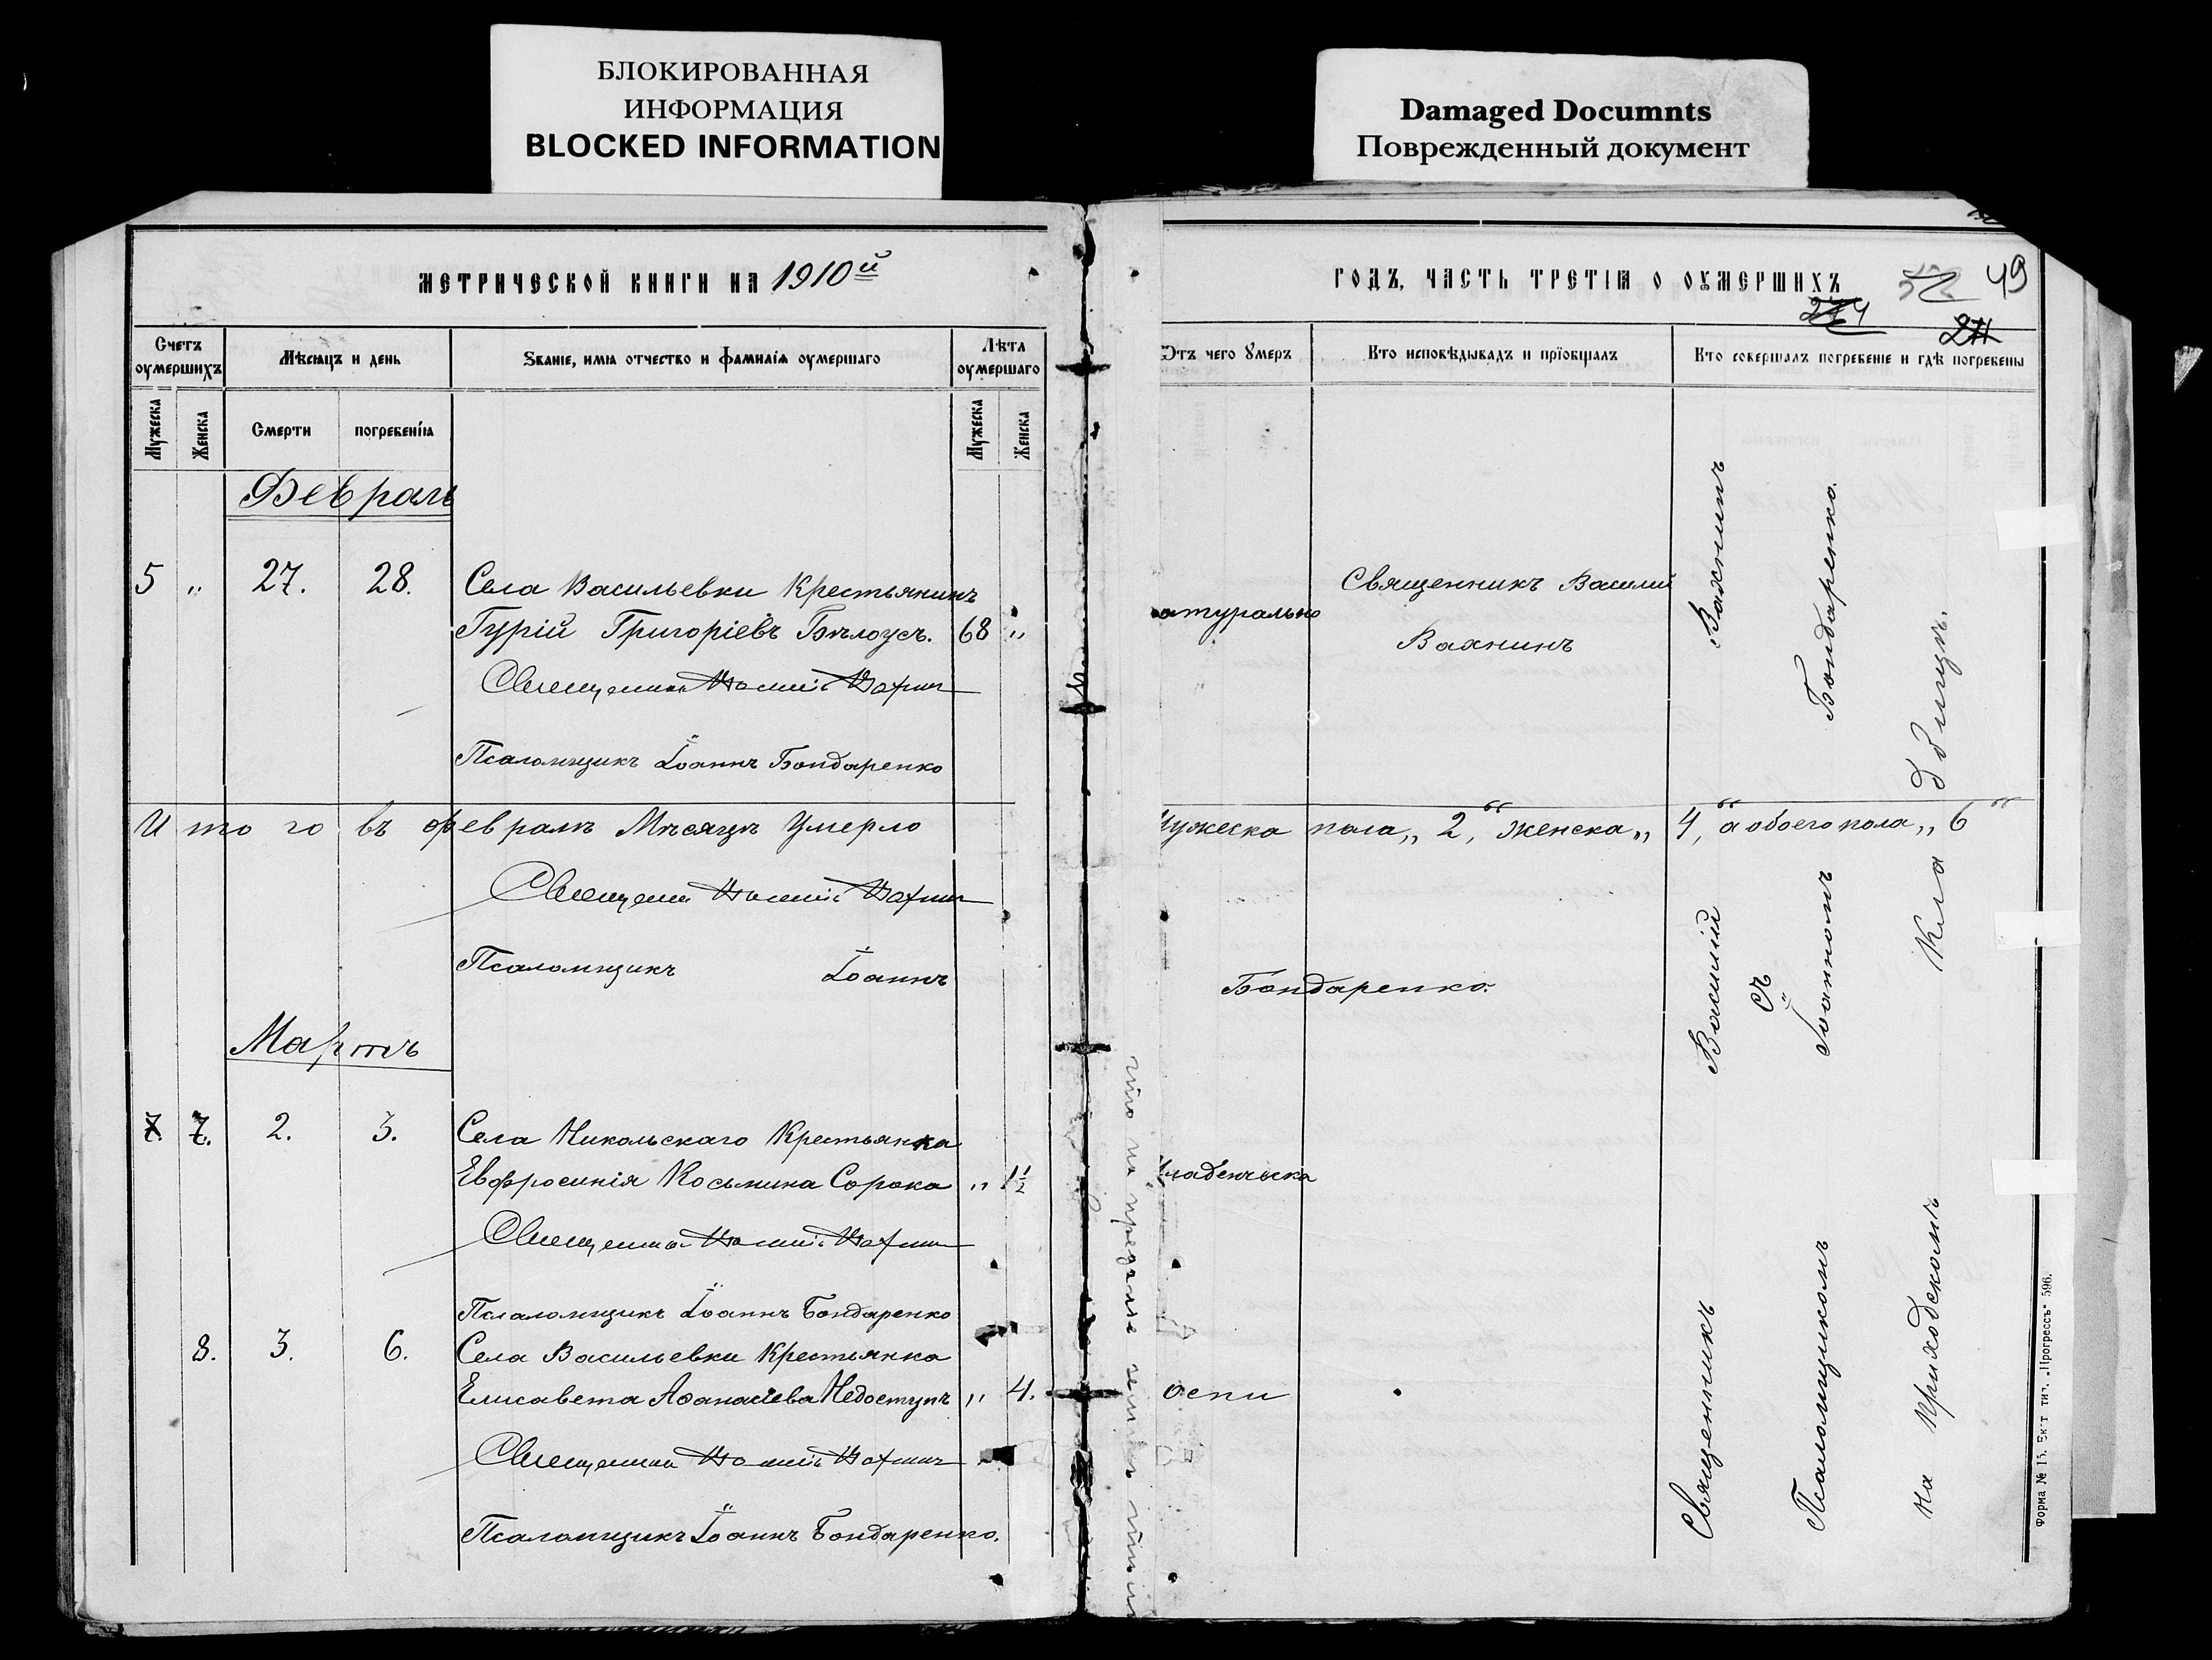 БЛОКИРОВАННАЯ
ИНФОРМАЦИЯ
BLOCKED INFORMATION
Damaged Documnts
Поврежденный документ
МЕТРИЧЕСКОЙ КНИГИ НА 1910й
Счетъ оумершихъ
Мѣсяцъ и день
Званіе, имя отчество и фамилія оумершаго
Лѣта оумершаго
Мужеска
Женска
Смерти
погребенія
Мужеска
Женска
Февраль
5 " 27. 28. Села Васильевки Крестьянинъ
Гурій Григоріевъ Бѣлоусъ. 68 "
Священникъ Василій Вахнинъ
Псаломщикъ Іоаннъ Бондаренко
Итого въ февралѣ Мѣсяцѣ Умерло
Священникъ Василій Вахнинъ
Псаломщикъ Іоаннъ
Мартъ
7. 7. 2. 3. Села Никольскаго Крестьянка
Евфросинія Косьмина Сорока " 1 1/2
Священникъ Василій Вахнинъ
Псаломщикъ Іоаннъ Бондаренко
8. 3. 6. Села Васильевки Крестьянка
Елисавета Аѳанасіева Недоступъ " 4.
Священникъ Василій Вахнинъ
Псаломщикъ Іоаннъ Бондаренко.
ГОДЪ, ЧАСТЬ ТРЕТІЯ О ОУМЕРШИХЪ
49
Отъ чего Умеръ
Кто исповѣдывадъ и пріобщалъ
Кто совершалъ погребеніе и гдѣ погребены
атурально
Священникъ Василій
Вахнинъ
ужеска пола „ 2 “, женска „ 4 “, а обоего пола „ 6 “
Бондаренко.
младенческа
оспи
Священникъ Василій Вахнинъ
съ
Псаломщикомъ Іоанномъ Бондаренко.
на приходскомъ Кладбищѣ.
Форма № 15. Екат. тип. „Прогрессъ“ 596.